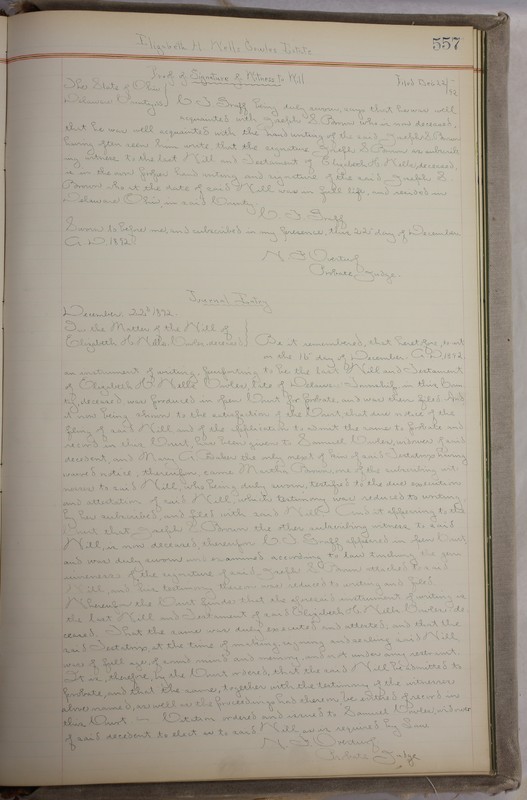 557
Elizabeth H. Wells Estate
Proof of Signature of Witness to Will
Filed Dec 22/92
The State of Ohio
Delaware County ss C J being duly sworn, says that he was well
acquainted with Joseph E. Brown who is now deceased,
that he was well acquainted with the hand writing of the said Joseph E. Brown
having often seen him write that the signature, Joseph E. Brown as subscrib
ing witness to the last Will and Testament of Elizabeth H. Wells deceased,
is in the own proper hand writing and signature of the said Joseph E.
Brown who at the date of said Will was in full life, and resided in
Delaware Ohio in said County.
C J
Sworn to before me and subscribed in my presence, this 22d day of December
A. D. 1892.
N. F. Overturf
Probate Judge.
Journal Entry
December 22d 1892.
In the Matter of the Will of
Elizabeth H. Wells deceased Be it remembered, that heretofore, to wit
on the 16 day of December A.D. 1892
an instrument of writing, purporting to be the last Will and Testament
of Elizabeth H. Wells late of Delaware Township, in this Coun
ty, deceased, was produced in open Court for probate, and was then filed. And
it now being shown to the satisfaction of the Court that due notice of the
filing of said Will and of the application to admit the same to probate and
record in this Court, has been given to Samuel widower of said
decedent, and Mary A. the only next of kin of said Testatrix having
waived notice, thereupon, came Martha one of the subscribing wit
nesses to said Will, who being duly sworn, testified to the due execution
and attestation of said Will, which testimony was reduced to writing
by her subscribed, and filed with said Will. And it appearing to the
Court that Joseph E. Brown the other subscribing witness to said
Will, is now deceased, thereupon C J appeared in open Court
and was duly sworn and examined according to law touching the gen
uineness of the signature of said Joseph E. Brown attached to said
Will, and his testimony there was reduced to writing and filed
Whereupon the Court finds that the aforesaid instrument of writing is
the last Will and Testament of said Elizabeth H. Wells de
ceased. That the same was duly executed and attested, and that the
said Testatrix, at the time of making, signing and sealing said Will,
was of full age, of sound mind and memory, and not under any restraint.
It is, therefore, by the Court ordered, that the said Will be admitted to
probate, and that the same, together with the testimony of the witnesses
above named, as well as the proceedings had thereon, be entered of record in
this Court — Citation ordered and issued to Samuel widower
of said decedent to elect as to said Will as is required by law
N. F. Overturf
Probate Judge